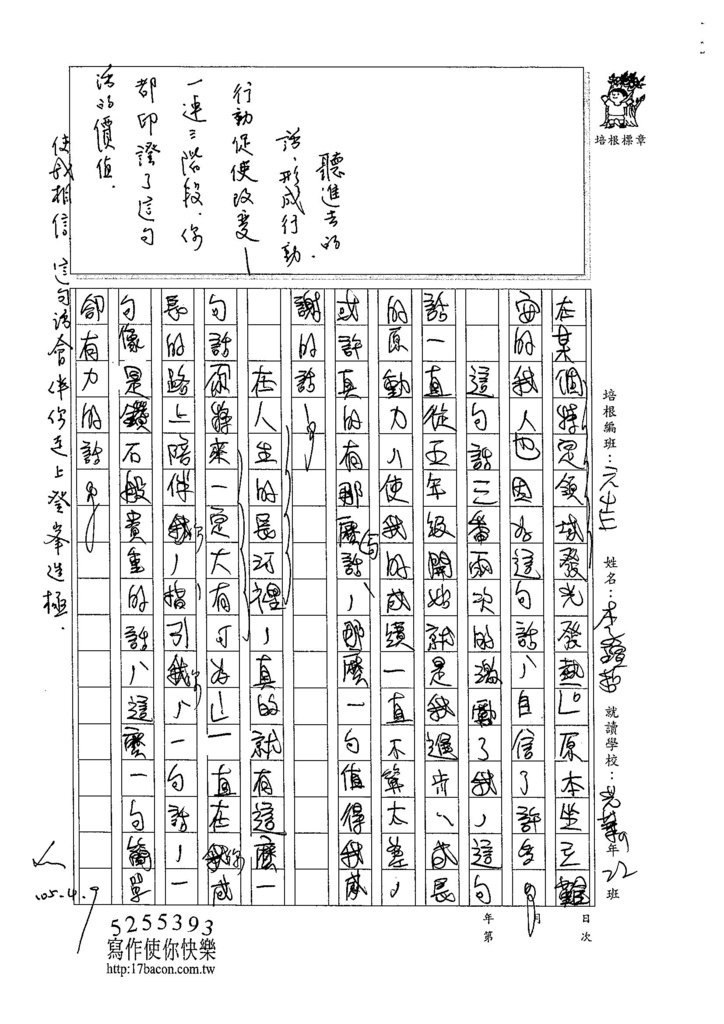 培根標章
培根編班：
姓名：李
就讀學校：光華
年22班
在某個特定領域發光發熱」。原本坐立難
安的我人也因為這句話，自信了許多。
這句話三番兩次的激勵了我，這句
話一直從五年級開始就是我進步、成長
的原動力，使我的成績一直不算太差，
或許真的有那麼話，那麼一句值得我感
謝的話。
在人生的長河裡，真的就有這麼一
句話「你將來一定大有可為」一直在我成
長的路上陪伴我，指引我，一句話，一
句像是鑽石般貴重的話，這麼一句簡單
卻有力的話。
聽進去的
話，形成行動，
行動促使改變—
一連三階段，你
都印證了這句
話的價值，
使我相信，這句話會伴你走上登峯造極．
105.4.9
日
次
月
年
第
5255393
寫作使你快樂
http:17bacon.com.tw